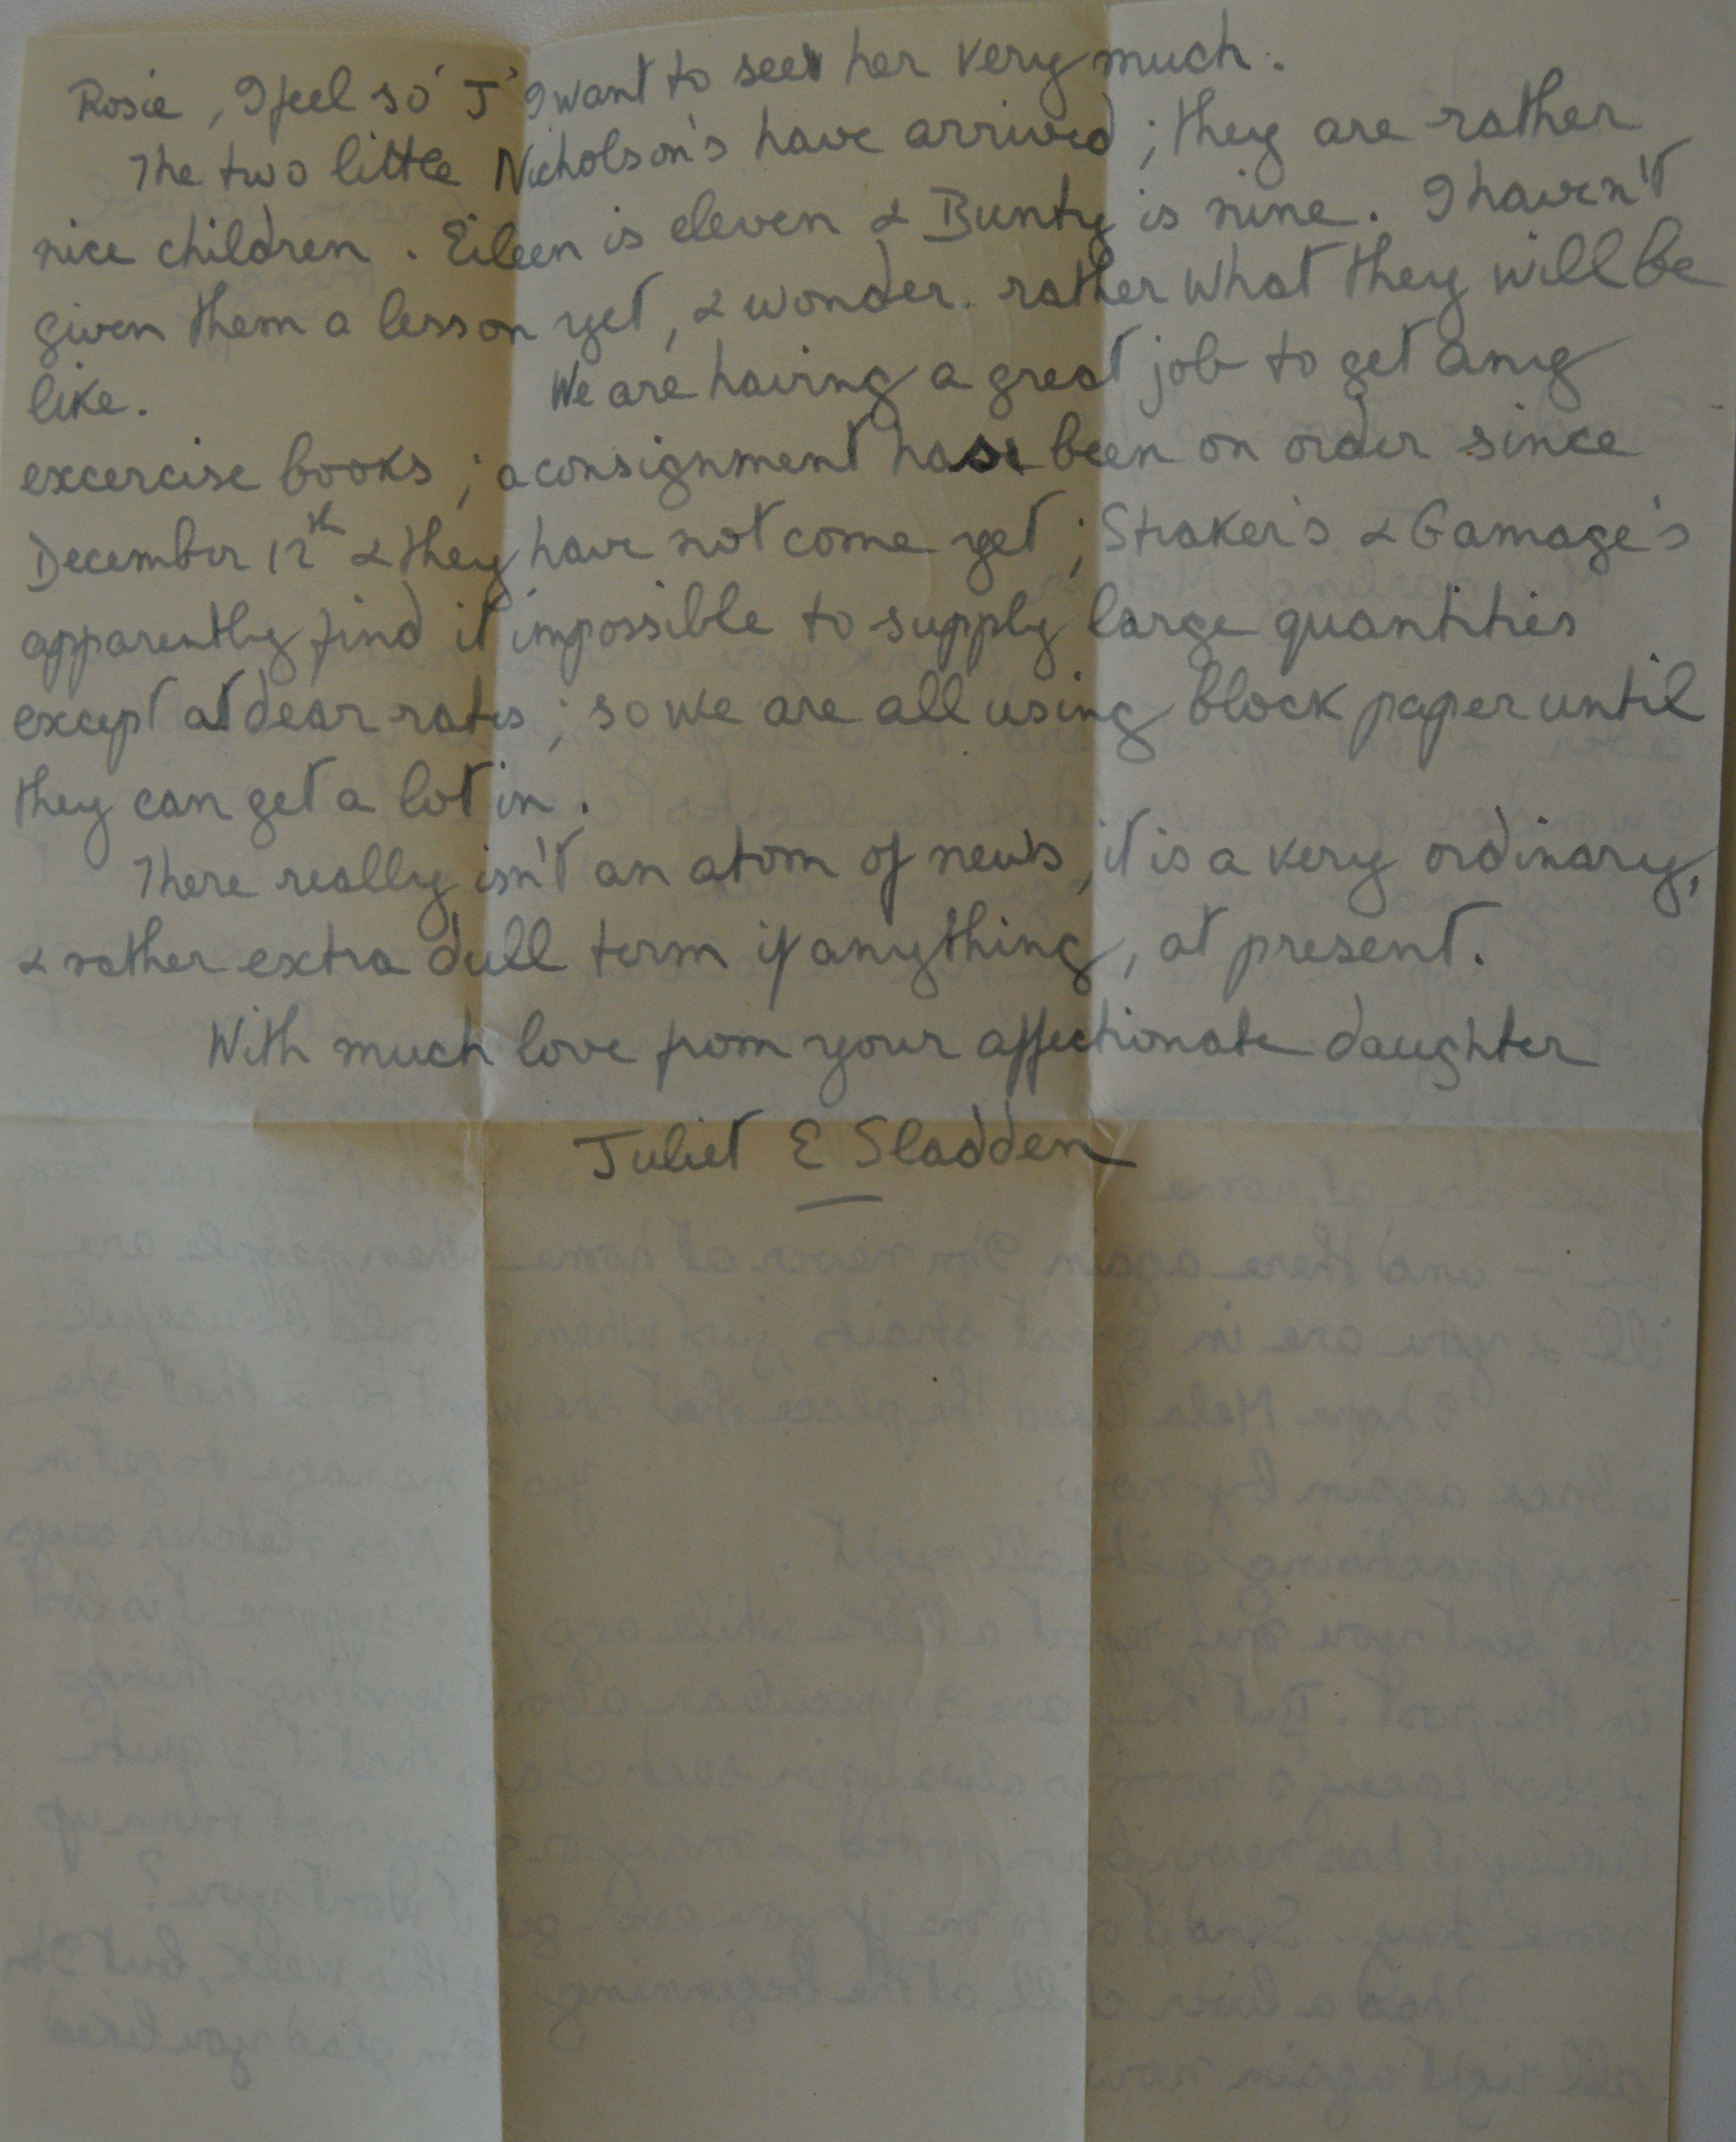 Rosie, I feel so 'J' I want to see her very much.
The two little Nicholson's have arrived; they are rather
nice children. Eileen is eleven & Bunty is nine. I haven't
given them a lesson yet, & wonder rather what they will be
like. We are having a great job to get any
excercise books; a consignment has been on order since
December 12th & they have not come yet; Straker's & Gamage's
apparently find it impossible to supply large quantities
except at dear rates; so we are all using block paper until
they can get a lot in.
There really isn't an atom of news, it is a very ordinary,
& rather extra dull term if anything, at present.
With much love from your affectionate daughter
Juliet E Sladden